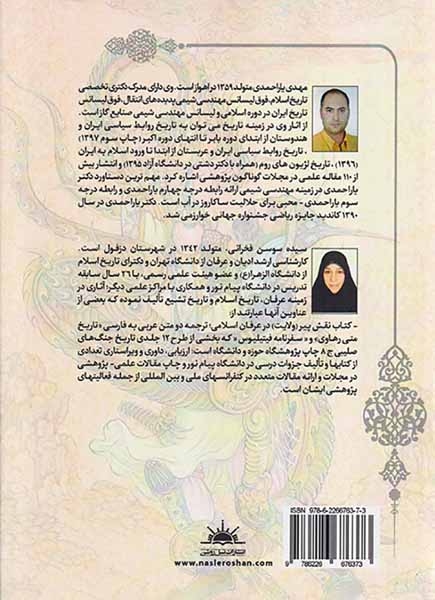 مهدی یاراحمدی متولد ۱۳۵۹ در اهواز است. وی دارای مدرک دکتری تخصصی
تاریخ اسلام، فوق لیسانس مهندسی شیمی پدیده‌های انتقال، فوق لیسانس
تاریخ ایران در دوره اسلامی و لیسانس مهندسی شیمی صنایع گاز است.
از آثار وی در زمینه تاریخ می توان به تاریخ روابط سیاسی ایران و
هندوستان از ابتدای دوره بابر تا انتهای دوره اکبر (چاپ سوم ۱۳۹۷)
، تاریخ روابط سیاسی ایران و عربستان از ابتدا تا ورود اسلام به ایران
(۱۳۹۶)، تاریخ لژیون های روم (همراه با دکتر دشتی در دانشگاه آزاد ۱۳۹۵) و انتشار بیش
از ۱۱۰ مقاله علمی در مجلات گوناگون پژوهشی اشاره کرد. مهم ترین دستاورد دکتر
یاراحمدی در زمینه مهندسی شیمی ارائه رابطه درجه چهارم یاراحمدی و رابطه درجه
سوم یاراحمدی - محبی برای حلالیت ساکاروز در آب است. دکتر یاراحمدی در سال
۱۳۹۰ کاندید جایزه ریاضی جشنواره جهانی خوارزمی شد.
سیده سوسن فخرائی، متولد ۱۳۴۲ در شهرستان دزفول است.
کارشناسی ارشد ادیان و عرفان از دانشگاه تهران و دکترای تاریخ اسلام
از دانشگاه الزهرا(ع) و عضو هیئت علمی رسمی، با ۲۶ سال سابقه
تدریس در دانشگاه پیام نور و همکاری با مراکز علمی دیگر؛ آثاری در
زمینه عرفان، تاریخ اسلام و تاریخ تشیع تألیف نموده که بعضی از
عناوین آنها عبارتند از:
- کتاب نقش پیر (ولایت) در عرفان اسلامی؛ ترجمه دو متن عربی به فارسی «تاریخ
متی رهاوی» و « سفرنامه فیتیلیوس » که بخشی از طرح ۱۲ جلدی تاریخ جنگ‌های
صلیبی ج ۸ چاپ پژوهشگاه حوزه و دانشگاه است؛ ارزیابی، داوری و ویراستاری تعدادی
از کتابها و تألیف جزوات درسی در دانشگاه پیام نور و چاپ مقالات علمی- پژوهشی
در مجلات و ارائه مقالات متعدد در کنفرانسهای ملی و بین المللی از جمله فعالیتهای
پژوهشی ایشان است.
ISBN 978-6-2266763-7-3
9 786226 676373
انتشارات نسل روشن
www.nasleroshan.com